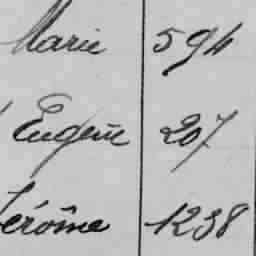 Marie 594
Eugène 207
Jérôme 1238